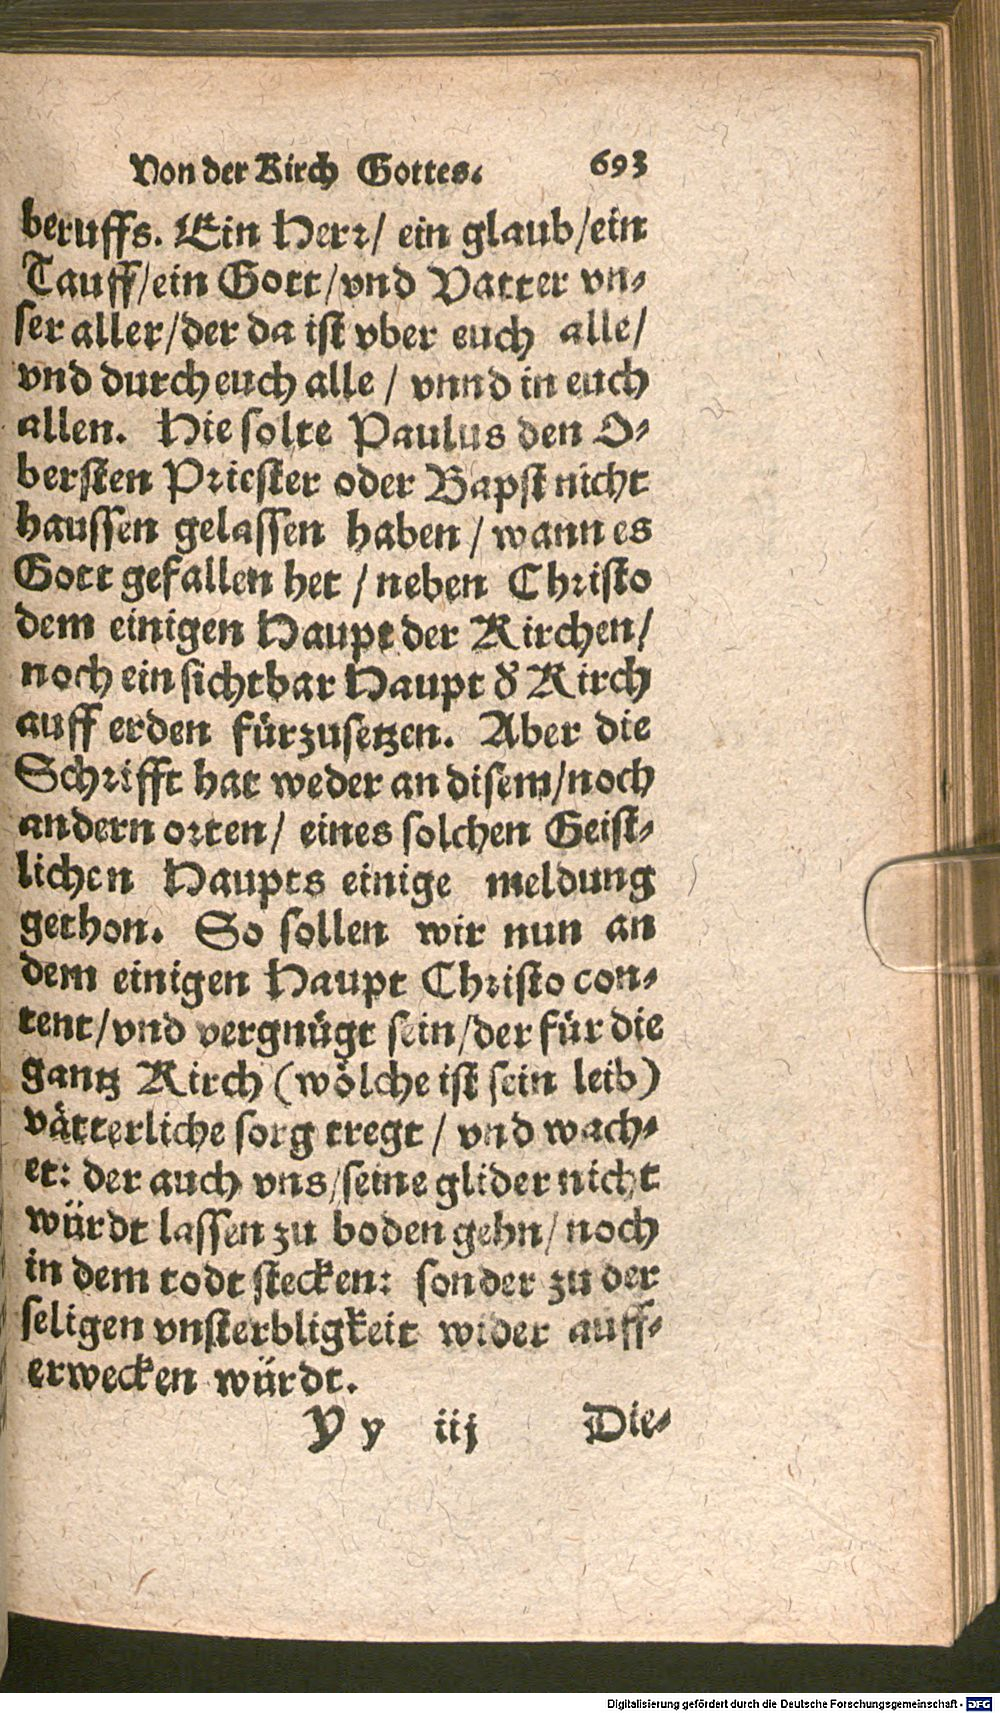 Von der Kirch Gottes. 693
beruffs. Ein Herr/ ein glaub/ein
Tauff/ein Gott/vnd Vatter vn-
ser aller/der da ist vber euch alle/
vnd durch euch alle / vnnd in euch
allen. Hie solte Paulus den O-
bersten Priester oder Bapst nicht
haussen gelassen haben / wann es
Gott gefallen het / neben Christo
dem einigen Haupt der Kirchen/
noch ein sichtbar Haupt d' Kirch
auff erden fürzusetzen. Aber die
Schrifft hat weder an disem/noch
andern orten/ eines solchen Geist-
lichen Haupts einige meldung
gethon. So sollen wir nun an
dem einigen Haupt Christo con-
tent/vnd vergnügt sein/der für die
gantz Kirch (wölche ist sein leib)
vätterliche sorg tregt / vnd wach-
et: der auch vns/seine glider nicht
würdt lassen zu boden gehn/noch
in dem todt stecken: sonder zu der
seligen vnsterbligkeit wider auff-
erwecken würdt.
Y y iij Die-
Digitalisierung gefördert durch die Deutsche Forschungsgemeinschaft - DFG